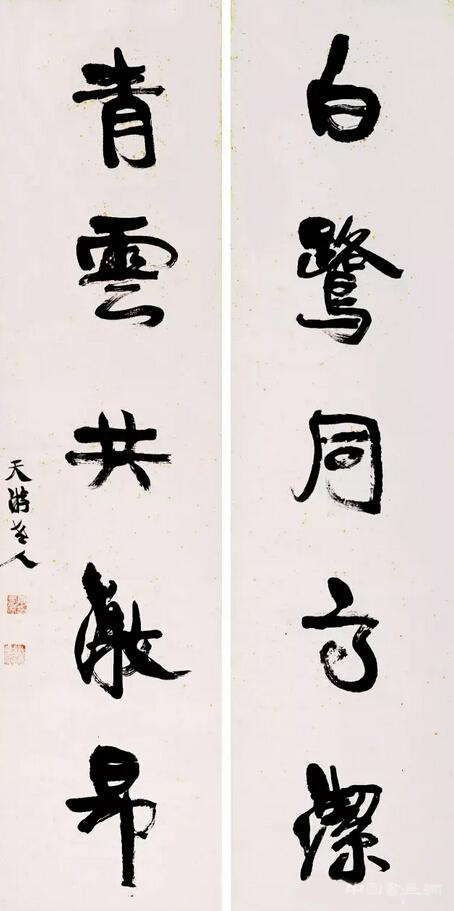 白鷺同高潔
青雲共激昂
天游老人
中国書画网